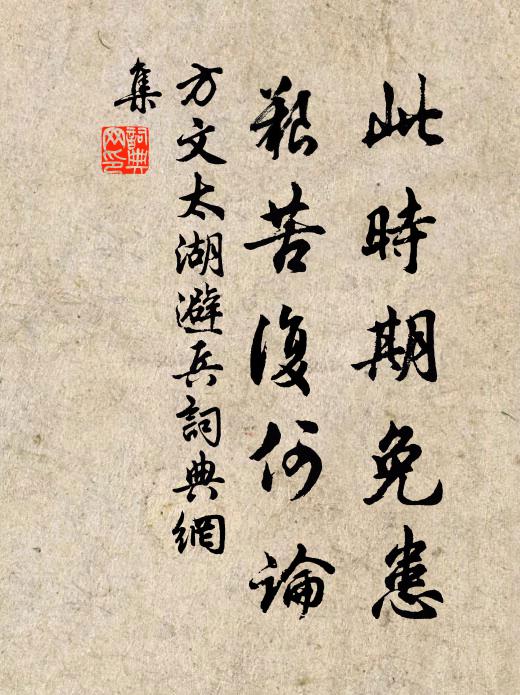 此時期免患
艱苦復何論
方文太湖避兵詞典網
集
詞典
網印